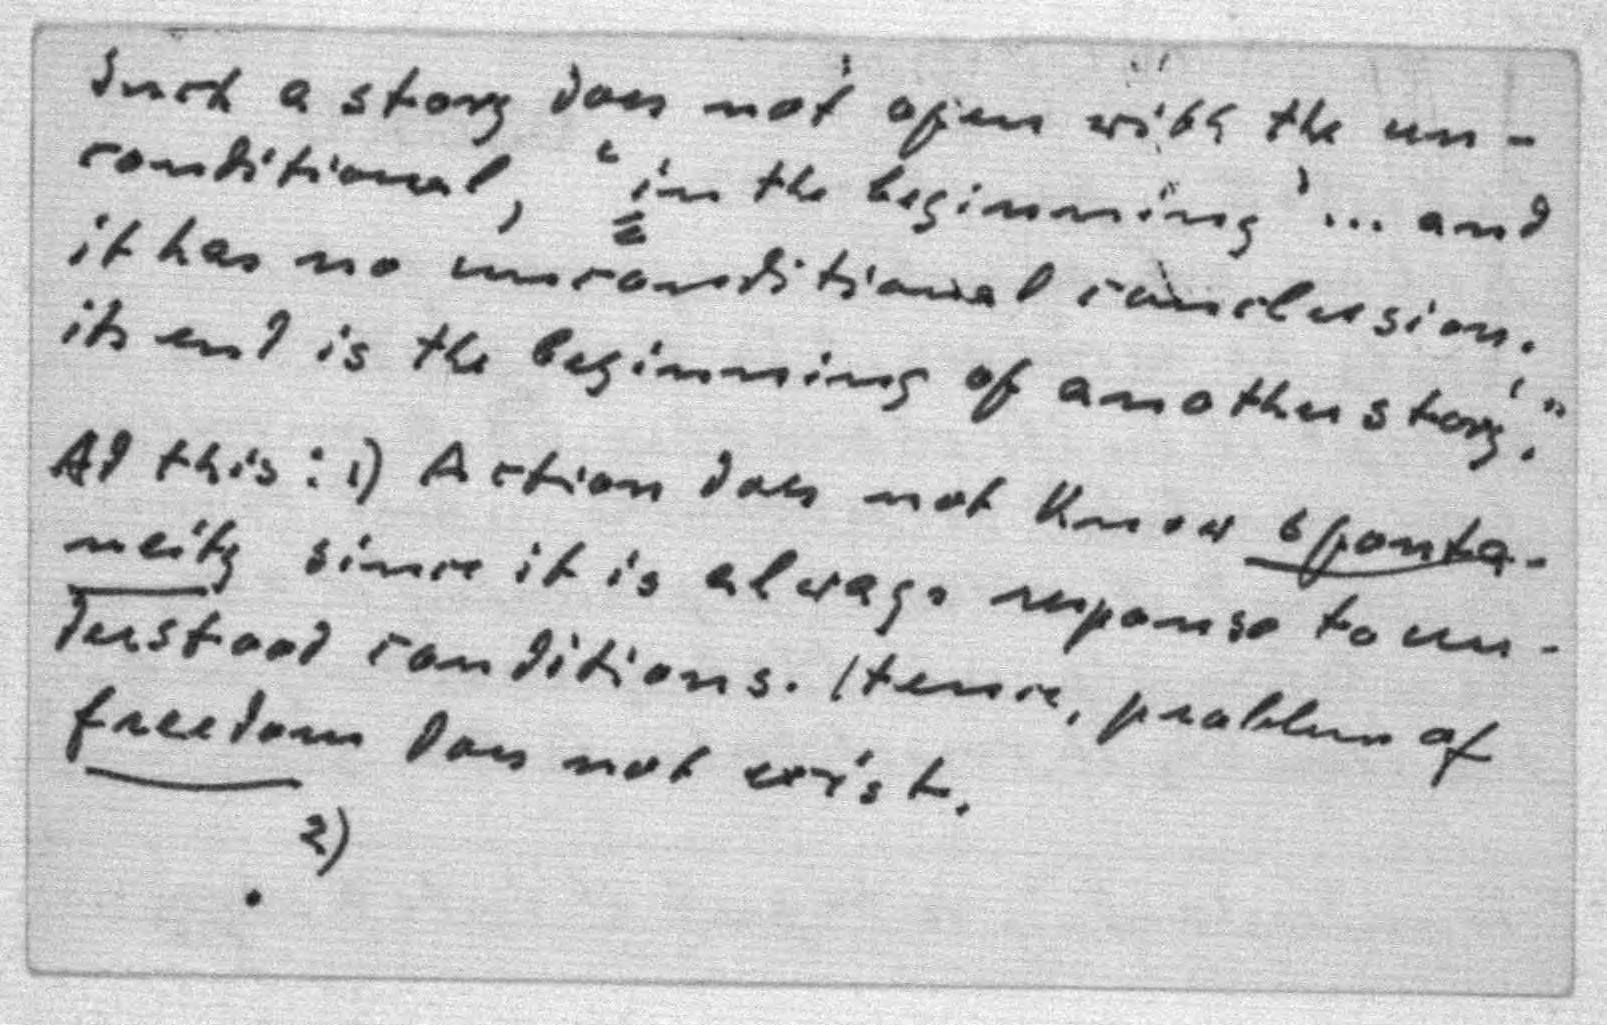 Such a story does not open with the un-
conditional, "in the beginning' ... and
it has no unconditional conclusion.
its end is the beginning of another story'."
Ad this: 1) Action does not know sponta-
neity since it is always response to un-
derstood conditions. Hence, problem of
freedom does not exist.
2)